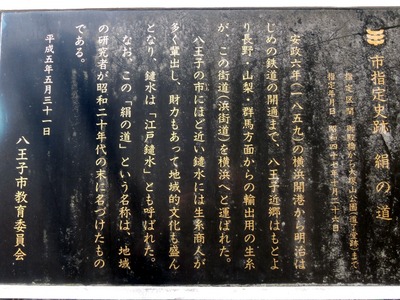 市指定史跡 絹の道
安政六年(一八五九)の横浜開港から明治は
じめの鉄道の開通まで、八王子近郷はもとよ
り長野・山梨・群馬方面からの輸出用の生糸
が、この街道(浜街道)を横浜へと運ばれた。
八王子の市にほど近い鑓水には生糸商人が
多く輩出し、財力もあって地域的文化も盛ん
となり、鑓水は「江戸鑓水」とも呼ばれた。
なお、この「絹の道」という名称は、地域
の研究者が昭和二十年代の末に名づけたもの
である。
平成五年五月三十一日
八王子市教育委員会